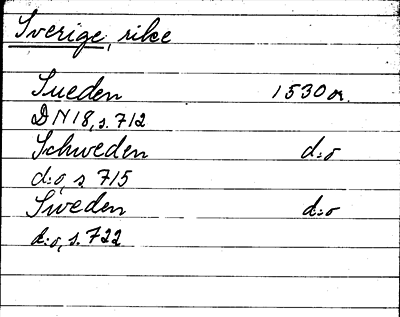 Sverige, rike
Sueden 1530 ſr.
DN 18, s. 712
Schweden d:o
d:o, s. 715
Sweden d:o
d:o, s. 722